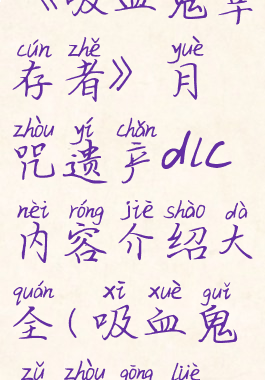 《吸血鬼幸
cún zhě yuè
存者》 月
zhòu yí chǎn
咒遗产dlc
nèi róng jiè shào dà
内容介绍大
quán xī xuè guǐ
全(吸血鬼
zǔ zhòu gōng lüè